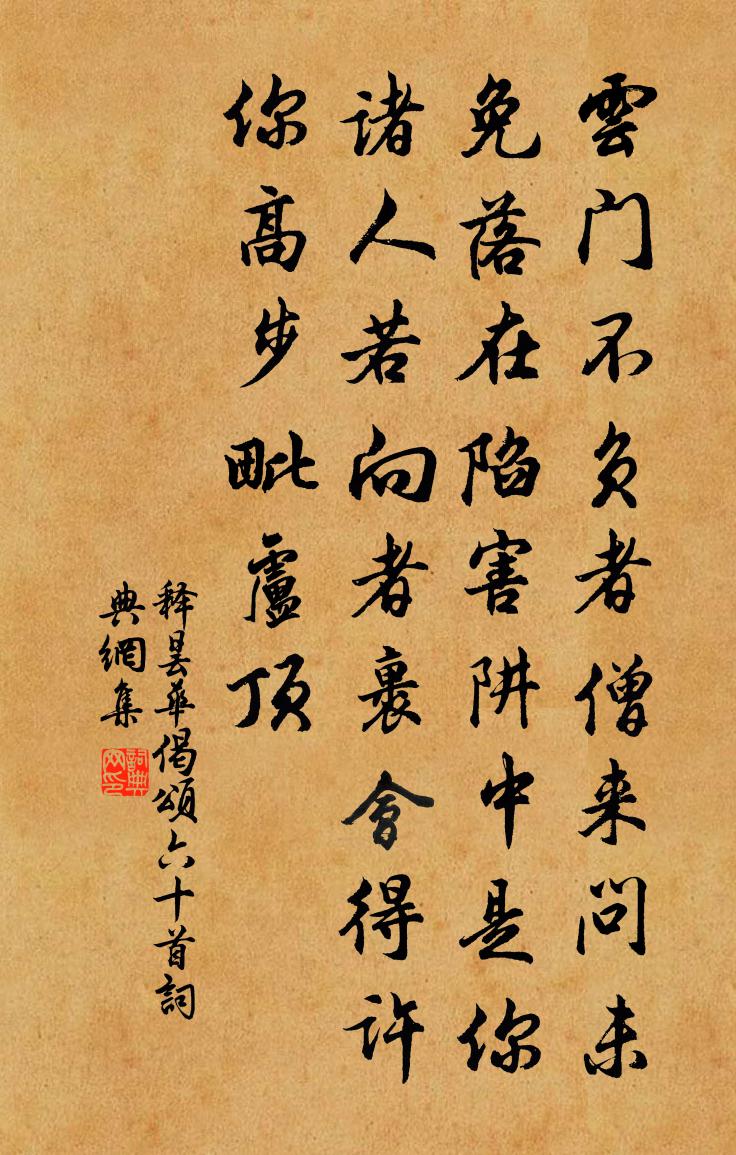 雲门不负者僧来问未
免落在陷害阱中是你
诸人若向者裹會得许
你高步毗盧顶
释昙華偈頌六十首詞
典網集
詞典网印